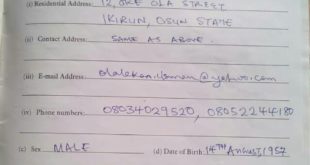 (i) Residential Address: 12, OKE OLA STREET
IKIRUN, OSUN STATE
(ii) Contact Address: SAME AS ABOVE
(iii) E-mail Address @yahoo.com
(iv) Phone numbers: 08034029520, 08052244180
(c) Sex MALE (d) Date of Birth: 14TH August, 1957